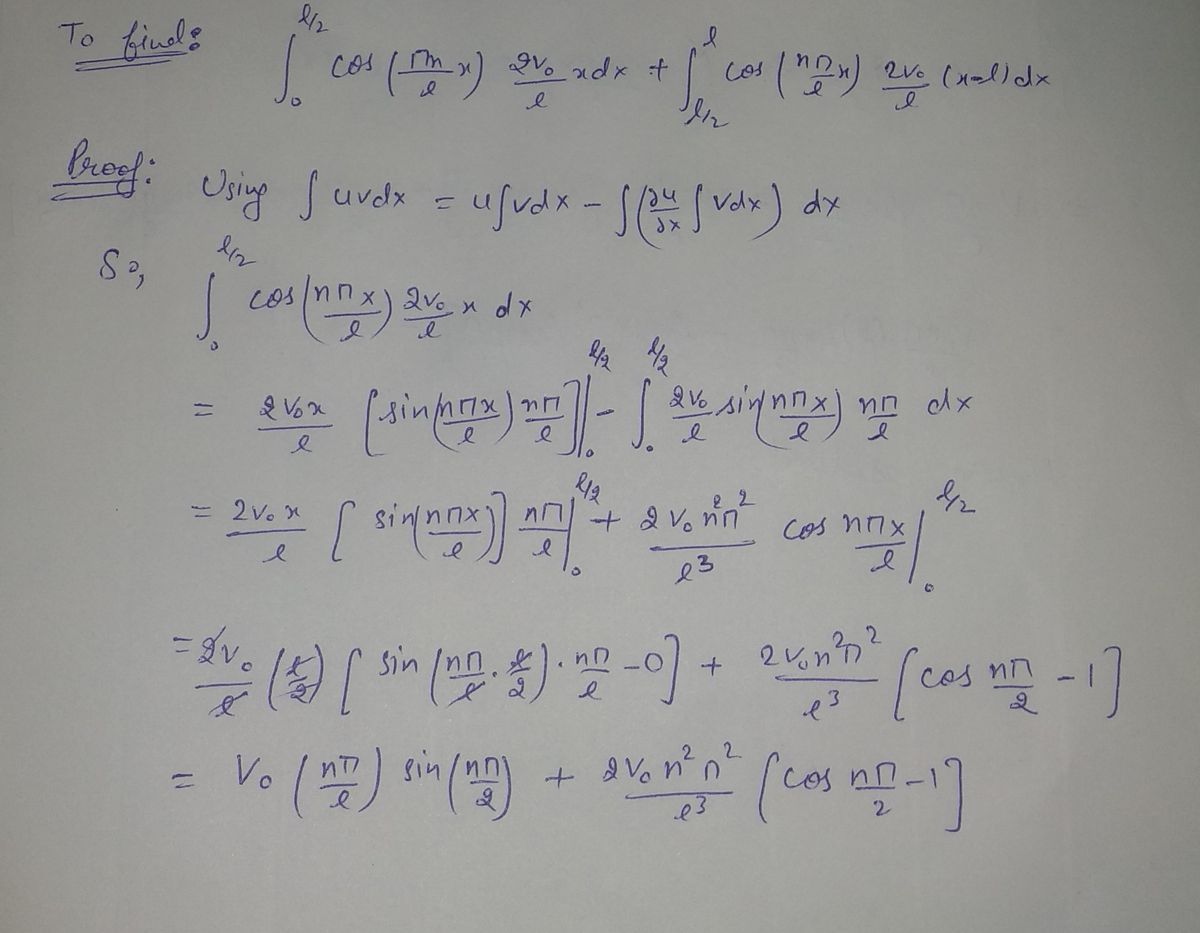 To find: ∫₀^{l/2} cos (πn/l x) 2v₀/l x dx + ∫_{l/2}^{l} cos (nπ/l x) 2v₀/l (x-l) dx
Proof: Using ∫ uvdx = u∫vdx - ∫(∂u/∂x ∫vdx) dx
So, ∫₀^{l/2} cos(nπx/l) 2v₀/l x dx
= 2v₀x/l [sin(nπx/l) nπ/l]|₀^{l/2} - ∫₀^{l/2} 2v₀/l sin(nπx/l) nπ/l dx
= 2v₀x/l [sin(nπx/l)] nπ/l|₀^{l/2} + 2v₀n²π²/l³ cos nπx/l|₀^{l/2}
= 2v₀/l (l/2) [sin (nπ/l · l/2) · nπ/l - 0] + 2v₀n²π²/l³ [cos nπ/2 - 1]
= V₀ (nπ/l) sin(nπ/2) + 2V₀n²π²/l³ [cos nπ/2 - 1]